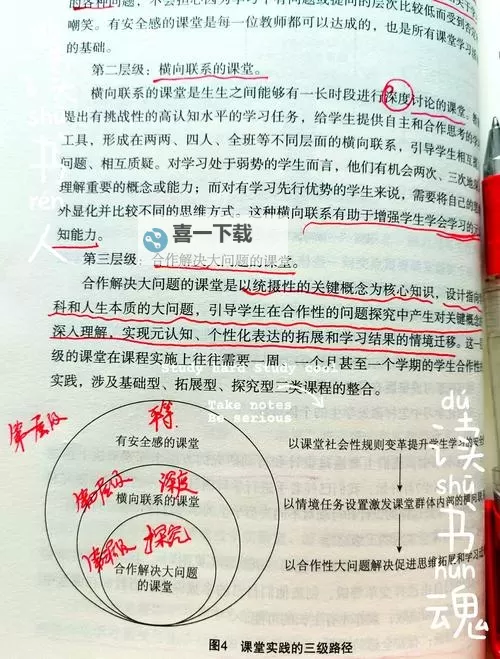 的各种问题，不会担心因为学习
问题的层次比较低而受到
嘲笑。有安全感的课堂是每一位教师都可以达成的，也是所有课堂学习
的基础。
第二层级：横向联系的课堂。
横向联系的课堂是生生之间能够有一长时段进行深度讨论的课堂。教
提出有挑战性的高认知水平的学习任务，给学生提供自主和合作思考的学
工具，形成在两两、四人、全班等不同层面的横向联系，引导学生相互
问题、相互质疑。对学习处于弱势的学生而言，他们有机会两次、三次地
理解重要的概念或能力；而对有学习先行优势的学生来说，需要将自己的思
外显化并比较不同的思维方式。这种横向联系有助于增强学生学会学习的元
知能力。
喜一下载
第三层级：合作解决大问题的课堂。
合作解决大问题的课堂是以统摄性的关键概念为核心知识，设计指向
科和人生本质的大问题，引导学生在合作性的问题探究中产生对关键概
深入理解，实现元认知、个性化表达的拓展和学习结果的情境迁移。这一
级的课堂在课程实施上往往需要一周、一个月甚至一个学期的学生合作性
实践，涉及基础型、拓展型、探究型三类课程的整合。
Study hard Study cool
Take notes
Be serious
dú
读
shū
书
rén
人
dú
读
shū
书
hún
魂
第一层级
平等
有安全感的课堂
第二层级
深度
横向联系的课堂
第三层级
探究
合作解决大问题
的课堂
以课堂社会性规则变革提升学生学习的安全
以情境任务设置激发课堂群体内部的横向联
以合作性大问题解决促进思维拓展和学习迁
图4 课堂实践的三级路径